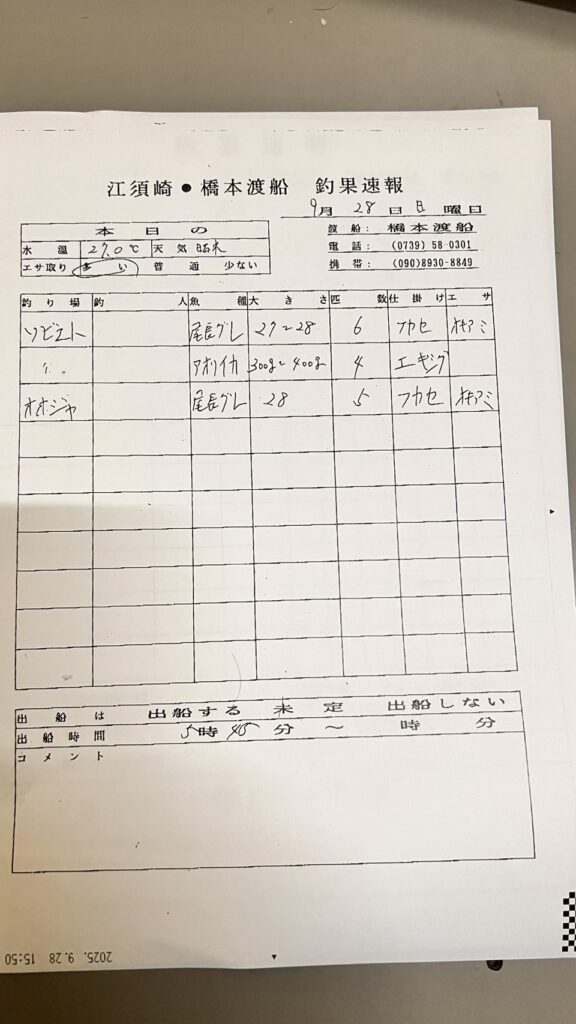 江須崎●橋本渡船 釣果速報
9月 28 日 日 曜日
本日の
水温 27.0℃ 天気 晴れ
エサ取り 多い 普通 少ない
渡船: 橋本渡船
電話: (0739) 58-0301
携帯: (090)8930-8849
釣り場 釣人 魚種 大きさ 匹数 仕掛け エサ
ソビエト 尾長グレ 27～28 6 フカセ オキアミ
〃 アオリイカ 300g～400g 4 エギング
オオジャ 尾長グレ 28 5 フカセ オキアミ
出船は 出船する 未定 出船しない
出船時間 5時45分～ 時 分
コメント
2025. 9.28 15:50